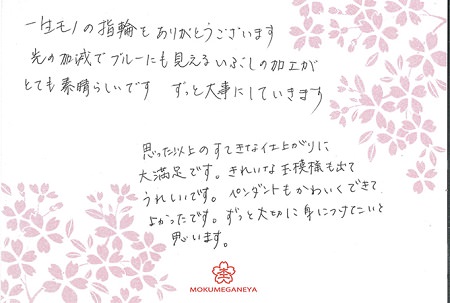 一生モノの指輪をありがとうございます
光の加減でブルーにも見えるいぶしの加工が
とても素晴らしいです ずっと大事にしていきます
思った以上のすてきな仕上がりに
大満足です。きれいな玉模様も出て
うれしいです。ペンダントもかわいくできて
よかったです。ずっと大切に身につけてたいと
思います。
MOKUMEGANEYA